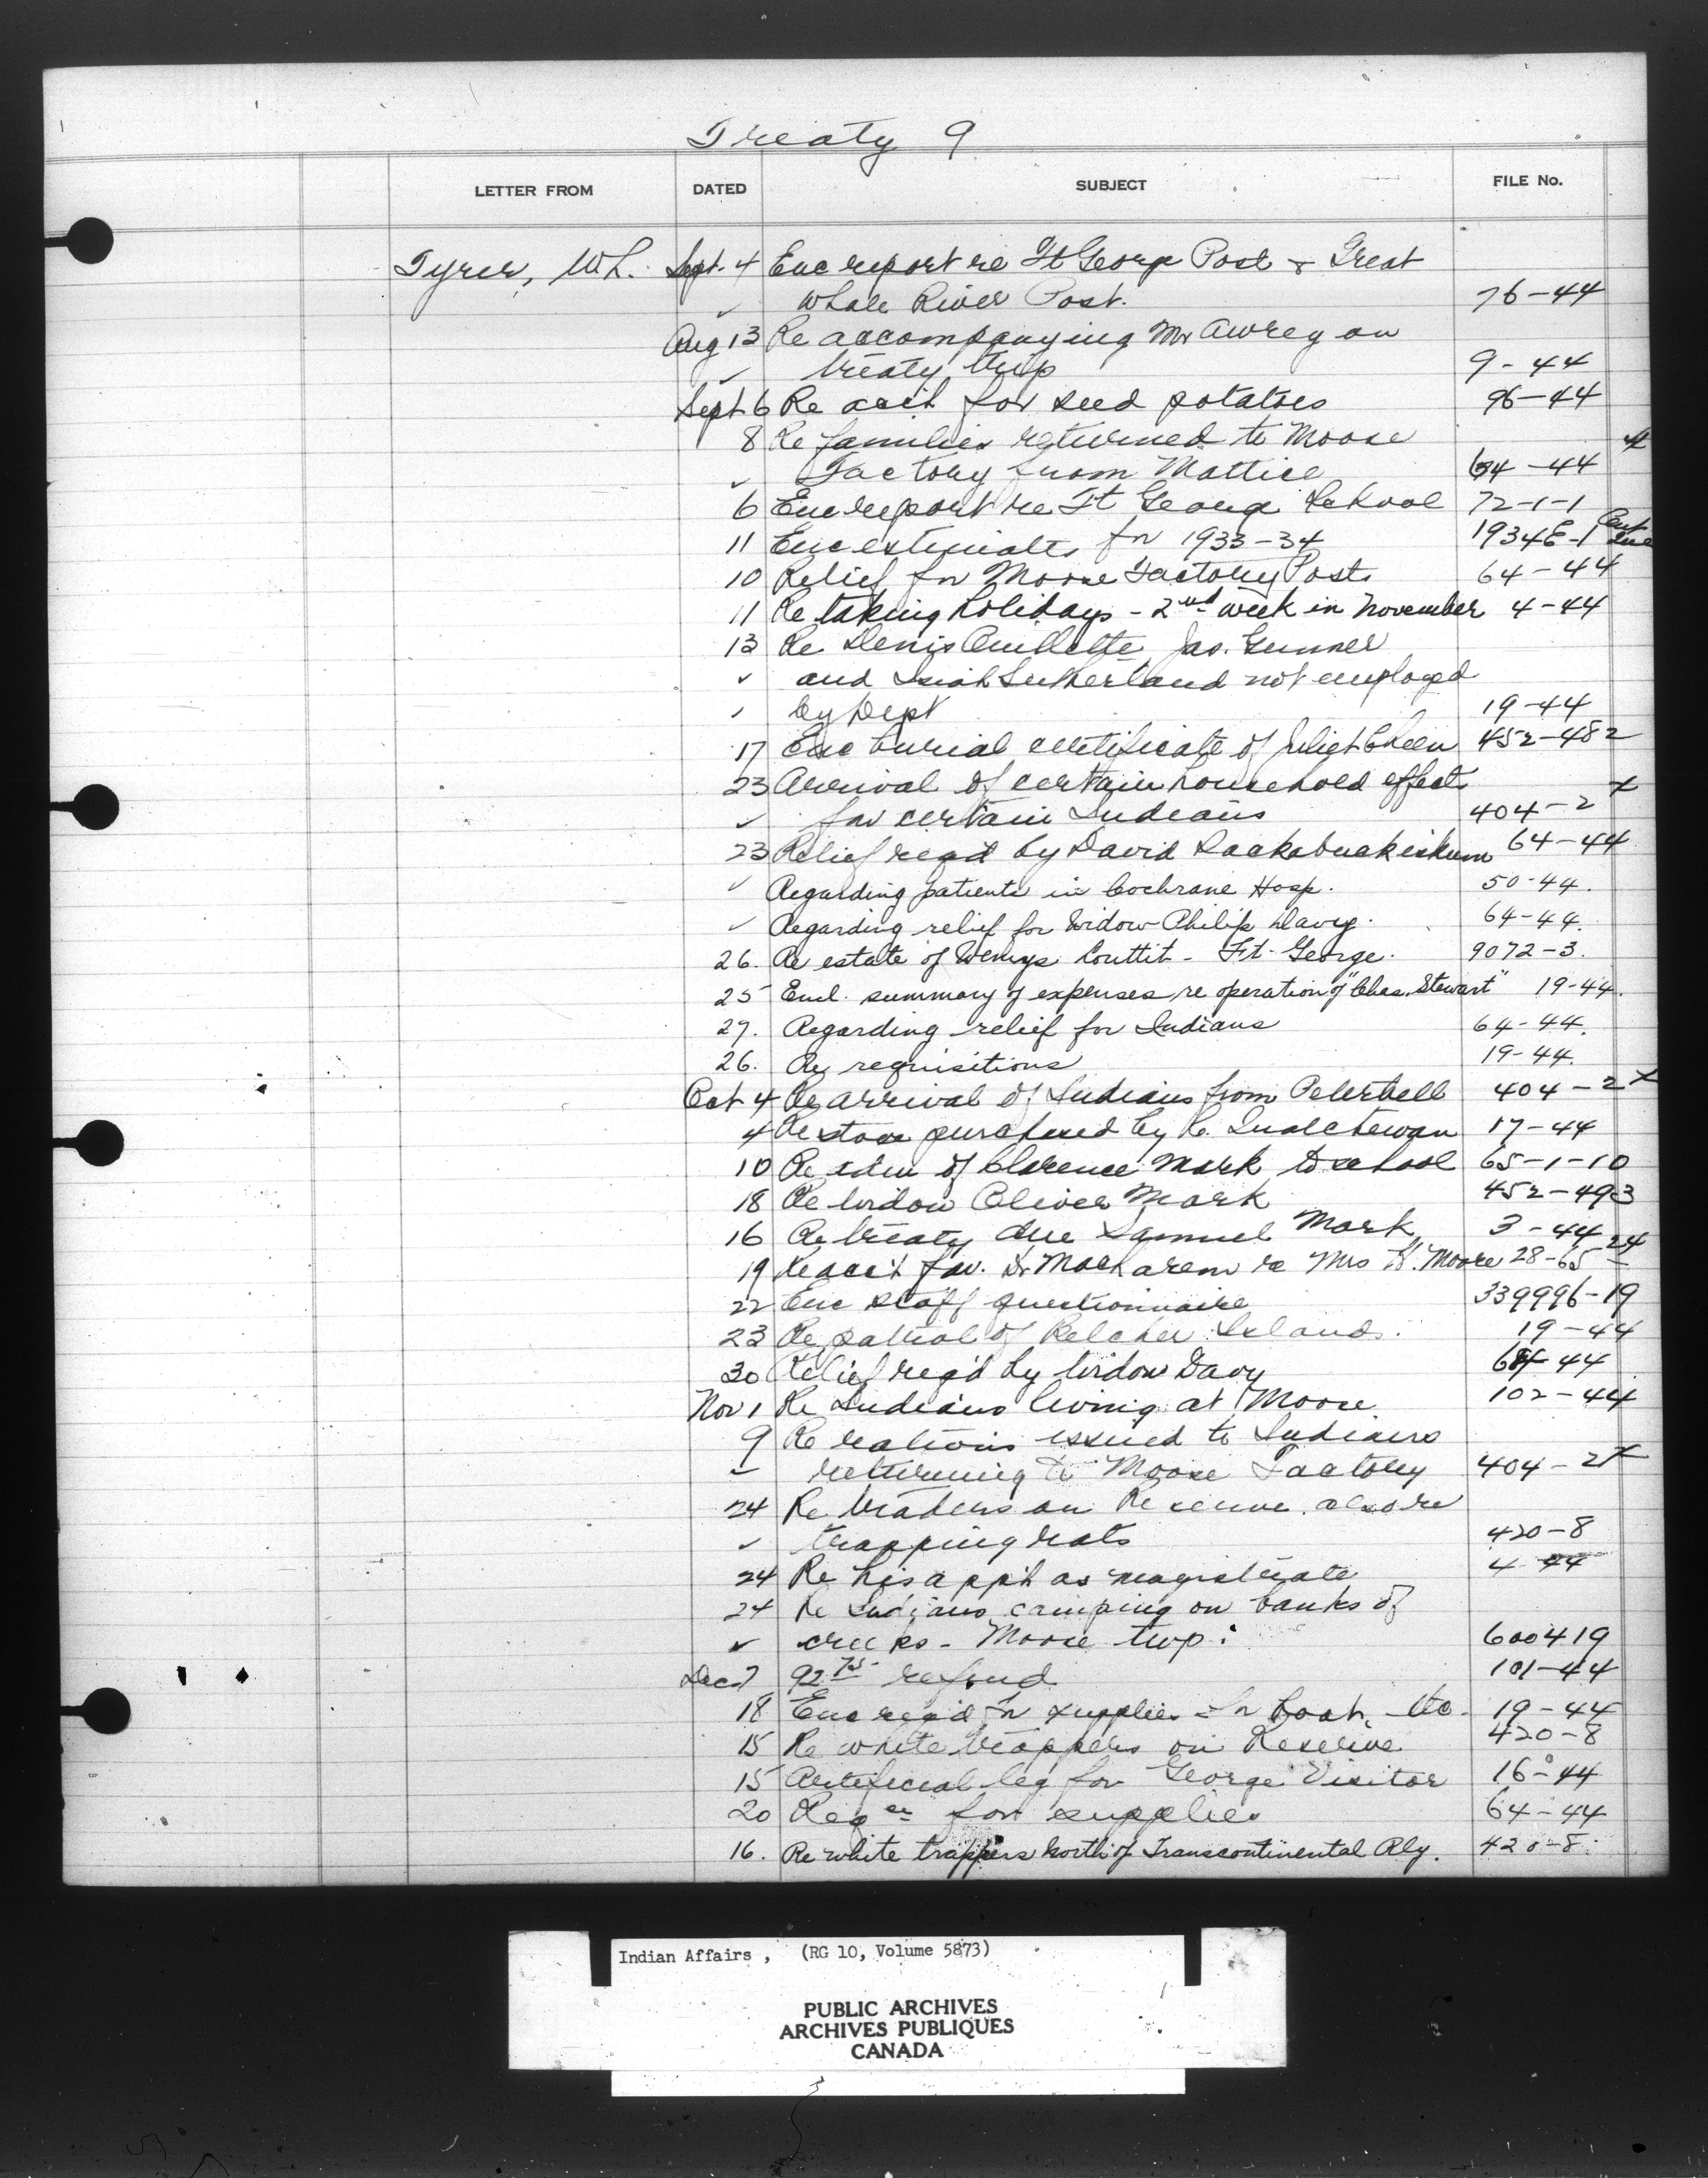 Treaty 9
LETTER FROM DATED SUBJECT FILE No.
Tyrer, W.L. Sept. 4 Enc report re Ft George Post & Great
✓ Whale River Post. 76-44
Aug 13 Re accompanying Mr Awrey on
✓ treaty trip 9-44
Sept 6 Re acct for seed potatoes 96-44
8 Re families returned to Moose
✓ Factory from Mattice 64-44
6 Enc report re Ft George School 72-1-1
11 Enc estimates for 1933-34 1934E-1
10 Relief for Moose Factory Post 64-44
11 Re taking holidays - 2nd week in November 4-44
13 Re Denis Ouillette, Jas. Gunner
✓ and Isiah Sutherland not employed
✓ by Dept 19-44
17 Enc burial certificate of Juliet Cheen 452-482
23 Arrival of certain household effects
✓ for certain Indians 404-2 x
23 Relief reqd by David 64-44
✓ Regarding patients in Cochrane Hosp. 50-44.
✓ Regarding relief for Widow Philip Davey. 64-44.
26. Re estate of Wemys Couttit - Ft. George. 9072-3.
25 Encl. summary of expenses re operation of "Chas. Stewart" 19-44.
27. Regarding relief for Indians 64-44.
26. Re requisitions 19-44.
Oct 4 Re arrival of Indians from Peterbell 404-2 x
4 Re stove purchased by R. 17-44
10 Re adm of Clarence Mark to school 65-1-10
18 Re Widow Oliver Mark 452-493
16 Re treaty due Samuel Mark 3-44
19 Re acct fav. Dr re Mrs H. Moore 28-65 24
22 Enc staff questionnaire 339996-19
23 Re patrol of Belcher Islands. 19-44
30 Relief reqd by Widow Davy 64-44
Nov 1 Re Indians living at Moose 102-44
9 Re rations issued to Indians
✓ returning to Moose Factory 404-2 x
24 Re traders on Reserve. also re
✓ trapping rats 420-8
24 Re his appt as magistrate 4-44
24 Re Indians camping on banks of
✓ creeks - Moose twp. 600419
Dec 7 92 75 refund 101-44
18 Enc reqd for supplies for boat, etc. 19-44
15 Re white trappers on Reserve 420-8
15 Artificial leg for George Visitor 16-44
20 Req en for supplies 64-44
16. Re white trappers North of Transcontinental Rly. 420-8.
Indian Affairs, (RG 10, Volume 5873)
PUBLIC ARCHIVES
ARCHIVES PUBLIQUES
CANADA